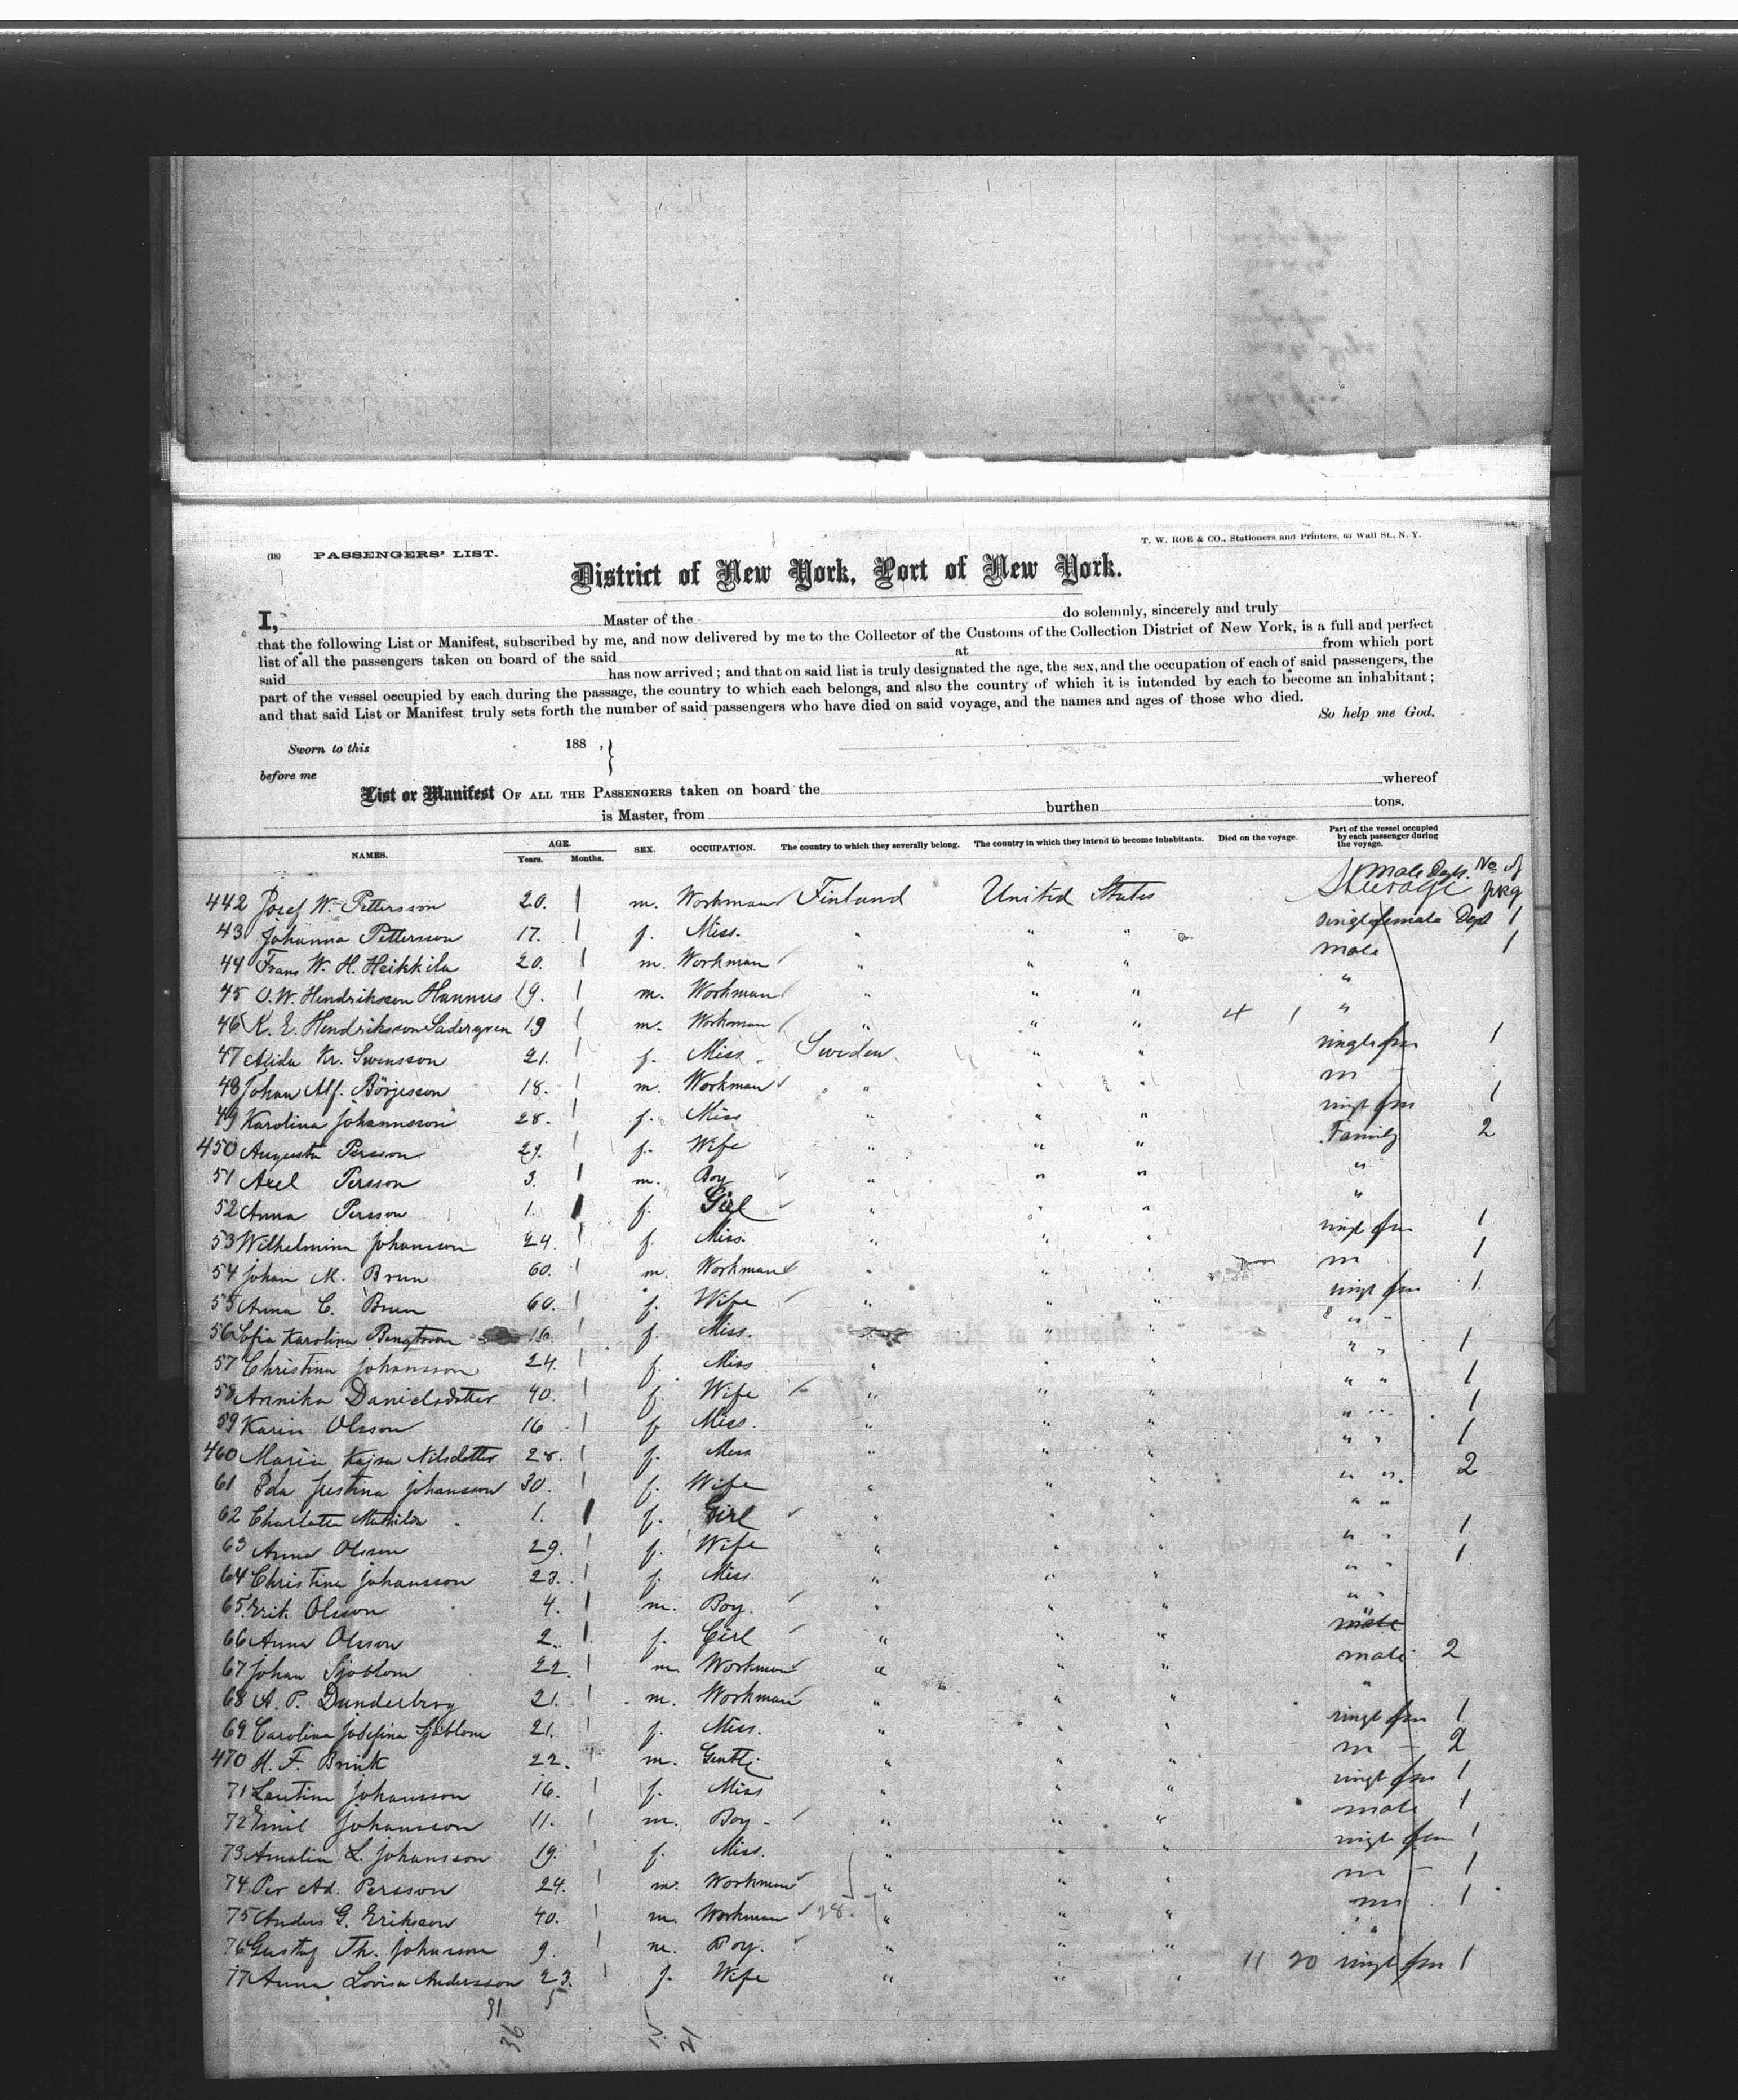 (18) PASSENGERS' LIST. T. W. ROE & CO., Stationers and Printers, 63 Wall St., N. Y.
District of New York, Port of New York.
I, Master of the do solemnly, sincerely and truly
that the following List or Manifest, subscribed by me, and now delivered by me to the Collector of the Customs of the Collection District of New York, is a full and perfect
list of all the passengers taken on board of the said at from which port
said has now arrived; and that on said list is truly designated the age, the sex, and the occupation of each of said passengers, the
part of the vessel occupied by each during the passage, the country to which each belongs, and also the country of which it is intended by each to become an inhabitant;
and that said List or Manifest truly sets forth the number of said passengers who have died on said voyage, and the names and ages of those who died.
So help me God.
Sworn to this 188 ,}
before me
List or Manifest OF ALL THE PASSENGERS taken on board the whereof
is Master, from burthen tons.
NAMES. AGE. Years. Months. SEX. OCCUPATION. The country to which they severally belong. The country in which they intend to become inhabitants. Died on the voyage. Part of the vessel occupied by each passenger during the voyage.
male Dept. No of
442 Josef W. Pettersson 20. m. Workman Finland United States Steerage pkg
43 Johanna Pettersson 17. f. Miss. " " " single female Dept 1
44 Frans W. H. Heikkila 20. m. Workman " " " male 1
45 O. W. Hendriksson Hannus 19. m. Workman " " " "
46 K. E. Hendriksson 19 m. Workman " " " 4 1 "
47 Kr. Swensson 21. f. Miss Sweden " " single fm 1
48 Johan Alf. Börjesson 18. m. Workman " " " m
49 Karolina Johannsson 28. f. Miss " " " singl fm 1
450 Augusta Persson 29. f. Wife " " " Family 2
51 Axel Persson 3. m. Boy " " " "
52 Anna Persson 1. f. Girl " " " "
53 Wilhelmina Johansson 24. f. Miss. " " " singl fm 1
54 Johan M. Brun 60. m. Workman " " " m 1
55 Anna C. Brun 60. f. Wife " " " singl fm 1
56 Sofia Karolina Bengtsson 16. f. Miss. " " " "
57 Christina Johansson 24. f. Miss " " " " " 1
58 Annika Danielsdotter 40. f. Wife " " " " " 1
59 Karin Olsson 16 f. Miss. " " " " " 1
460 Maria Kajsa Nilsdotter 28. f. Miss " " " " " 1
61 Ida Justina Johansson 30. f. Wife " " " " " 2
62 Charlotta Mathilda 1. f. Girl " " " " "
63 Anna Olsson 29. f. Wife " " " " " 1
64 Christina Johansson 23. f. Miss " " " " " 1
65 Erik Olsson 4. m. Boy. " " " " "
66 Anna Olsson 2. f. Girl " " " male
67 Johan Sjöblom 22. m. Workman " " " male 2
68 A. P. Dunderberg 21. m. Workman " " " "
69 Carolina Josefina Sjöblom 21. f. Miss. " " " singl fm 1
470 H. F. Brink 22. m. Gentl. " " " m 2
71 Johansson 16. f. Miss " " " singl fm 1
72 Emil Johansson 11. m. Boy " " " male 1
73 Amalia L. Johansson 19. f. Miss. " " " singl fm 1
74 Per Ad. Persson 24. m. Workman " " " m 1
75 Anders G. Erikson 40. m. Workman 28. " " " m 1
76 Gustaf Th. Johanson 9. m. Boy. " " " "
77 Anna Lovisa Andersson 23. f. Wife " " " 11 20 singl fm 1
31 5
36 15 21